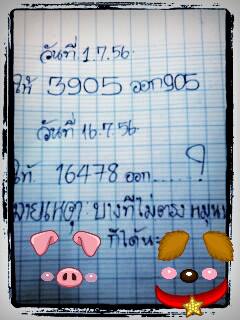 วันที่ 1.7.56
ให้ 3905 ออก905
วันที่ 16.7.56
ให้ 16478 ออก......?
หมายเหตุ: บางทีไม่ตรง หมุนๆ
ก็ได้นะ